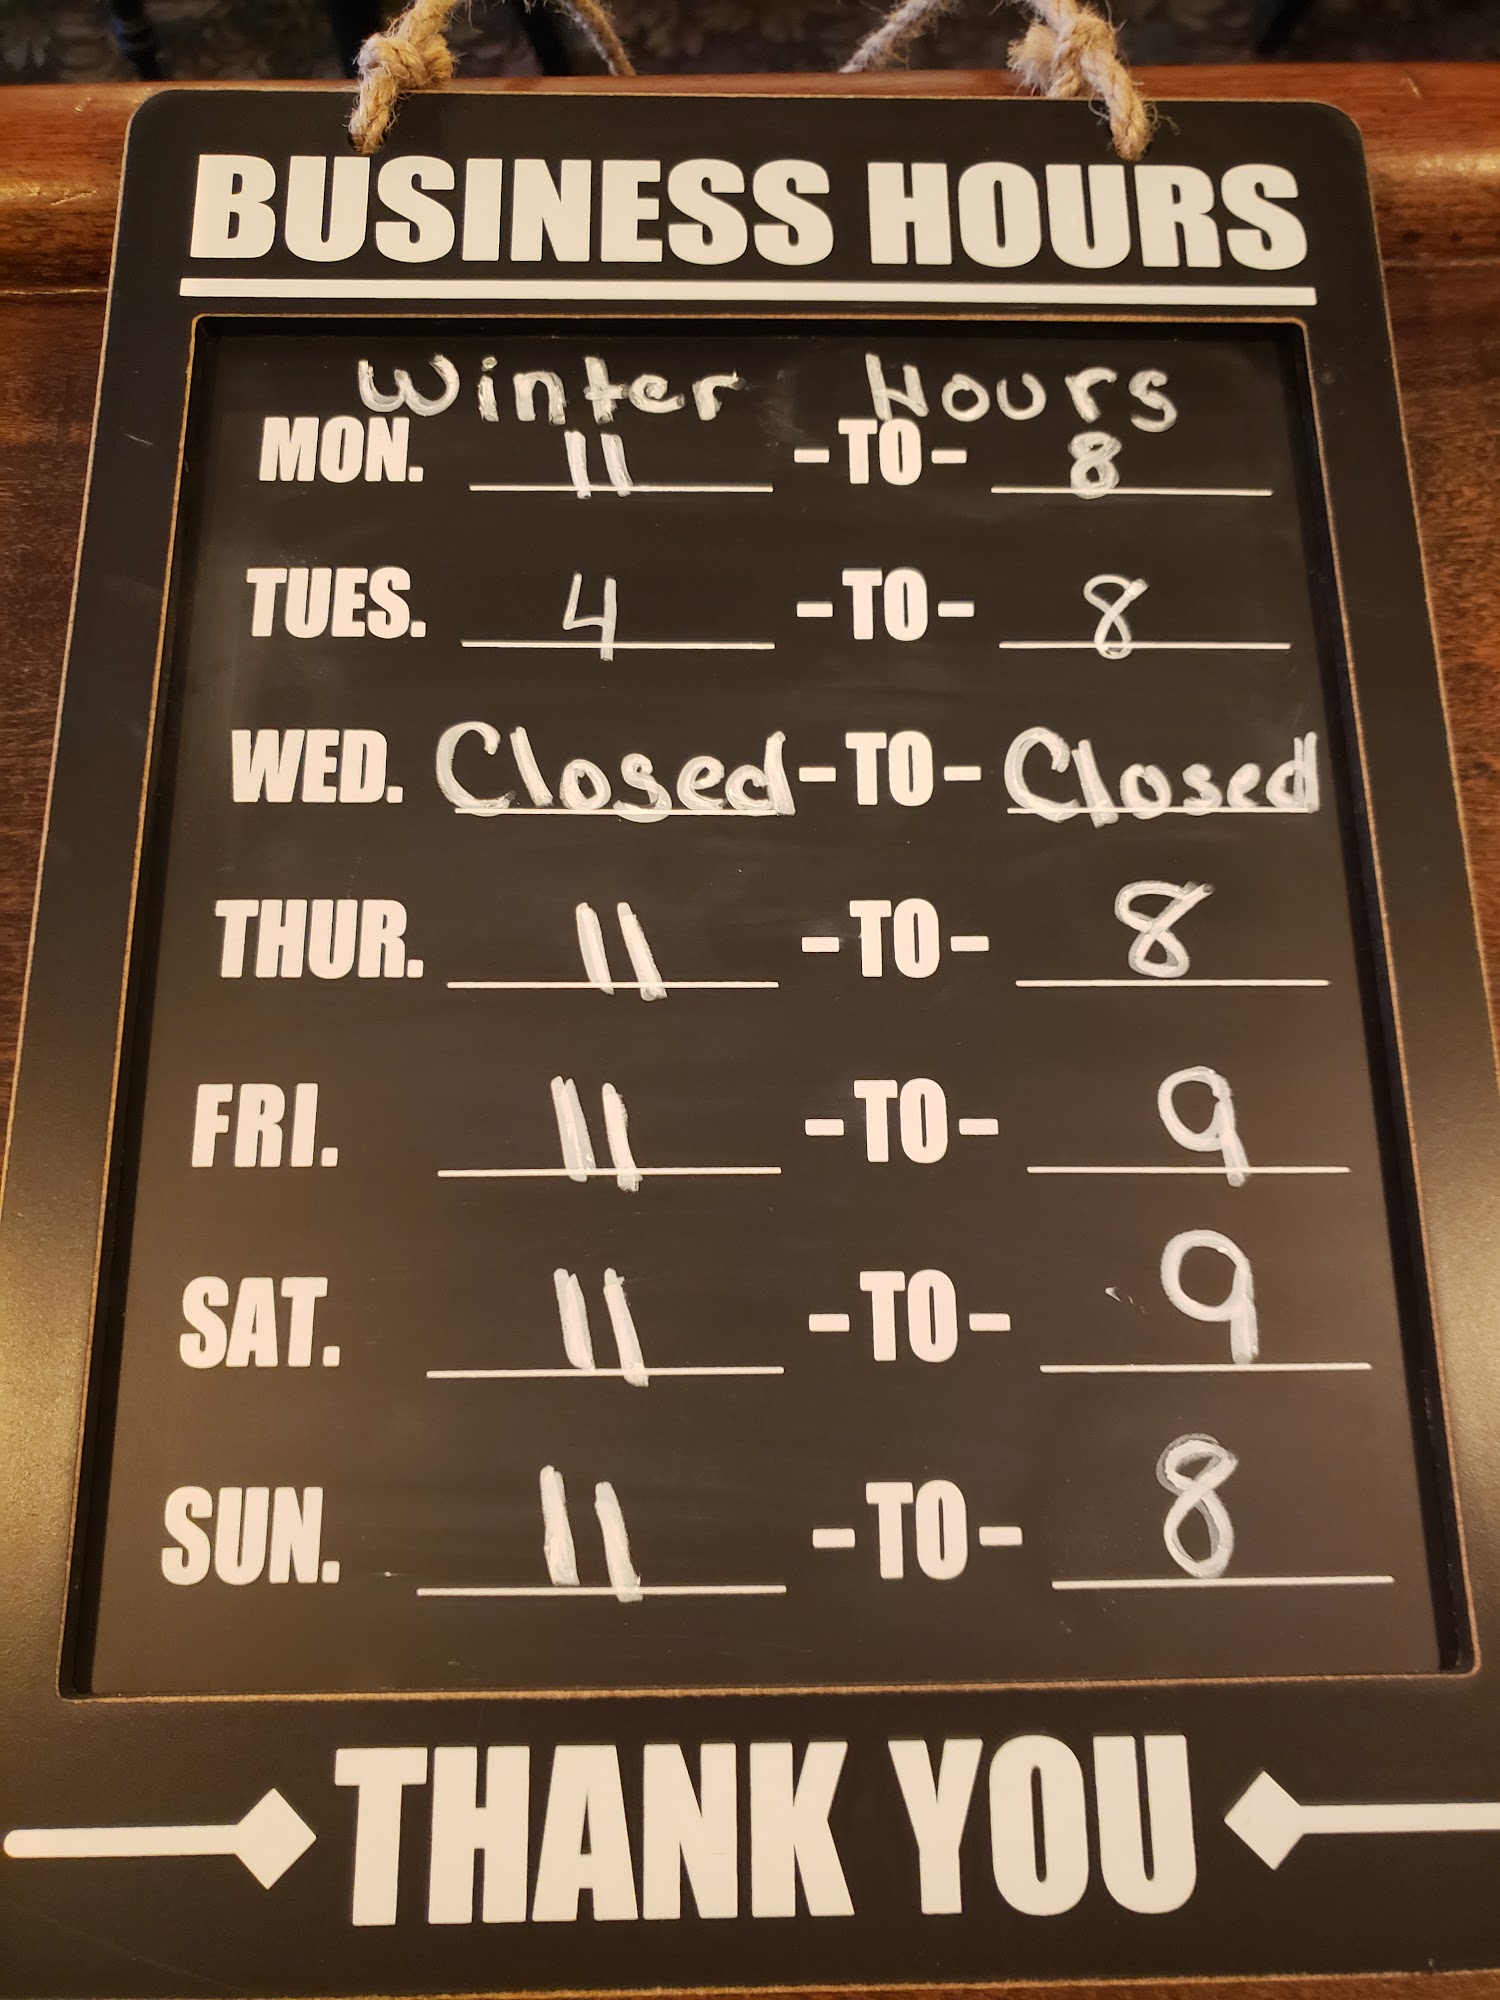 BUSINESS HOURS
Winter Hours
MON. 11 -TO- 8
TUES. 4 -TO- 8
WED. Closed -TO- Closed
THUR. 11 -TO- 8
FRI. 11 -TO- 9
SAT. 11 -TO- 9
SUN. 11 -TO- 8
THANK YOU